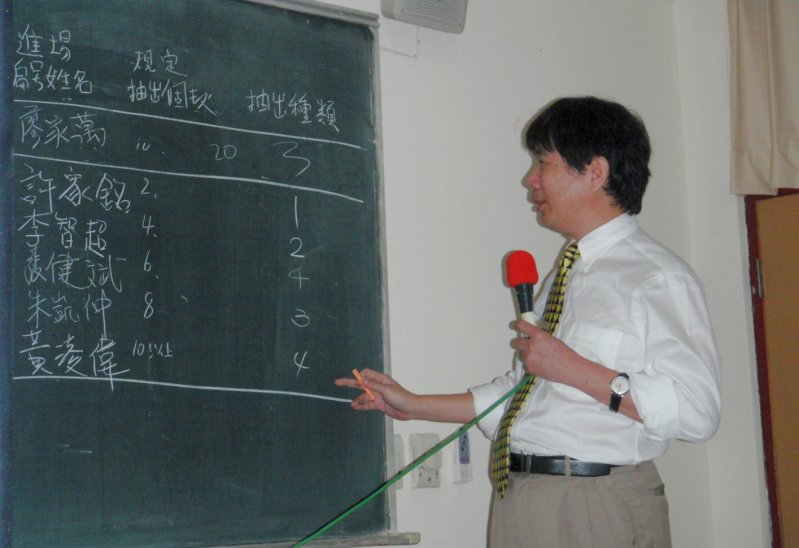 進場 規定
編號姓名 抽出個數 抽出種類
廖家萬 10 20 3
許家銘 2. 1
李智超 4. 2
健斌 6. 4
朱凱仲 8 3
黃凌偉 10以上 4